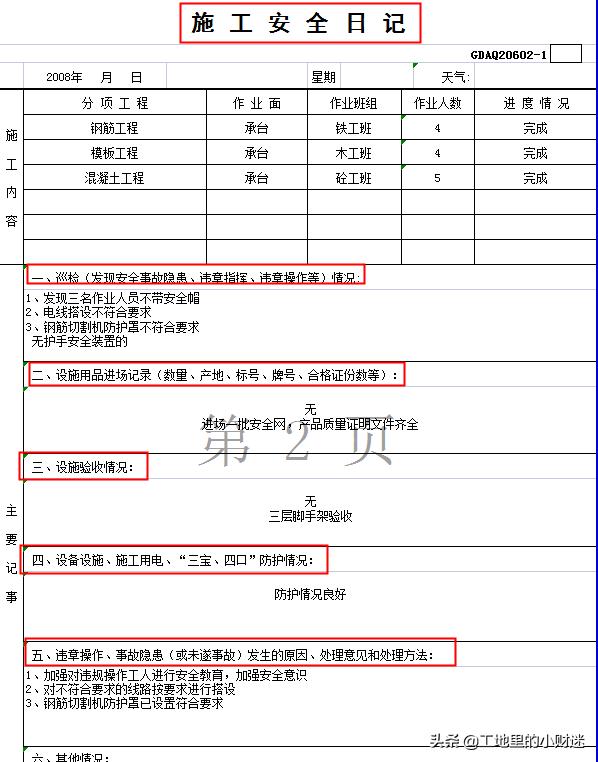 施 工 安 全 日 记
GDAQ20602-1
2008年 月 日 星期 天气:
施工内容
分 项 工 程 作 业 面 作业班组 作业人数 进 度 情 况
钢筋工程 承台 铁工班 4 完成
模板工程 承台 木工班 4 完成
混凝土工程 承台 砼工班 5 完成
主要记事
一、巡检（发现安全事故隐患、违章指挥、违章操作等）情况:
1、发现三名作业人员不带安全帽
2、电线搭设不符合要求
3、钢筋切割机防护罩不符合要求
无护手安全装置的
二、设施用品进场记录（数量、产地、标号、牌号、合格证份数等）:
无
进场一批安全网，产品质量证明文件齐全
第 2 页
三、设施验收情况:
无
三层脚手架验收
四、设备设施、施工用电、“三宝、四口”防护情况:
防护情况良好
五、违章操作、事故隐患（或未遂事故）发生的原因、处理意见和处理方法:
1、加强对违规操作工人进行安全教育，加强安全意识
2、对不符合要求的线路按要求进行搭设
3、钢筋切割机防护罩已设置符合要求
六、其他情况:
头条 @工地里的小财迷